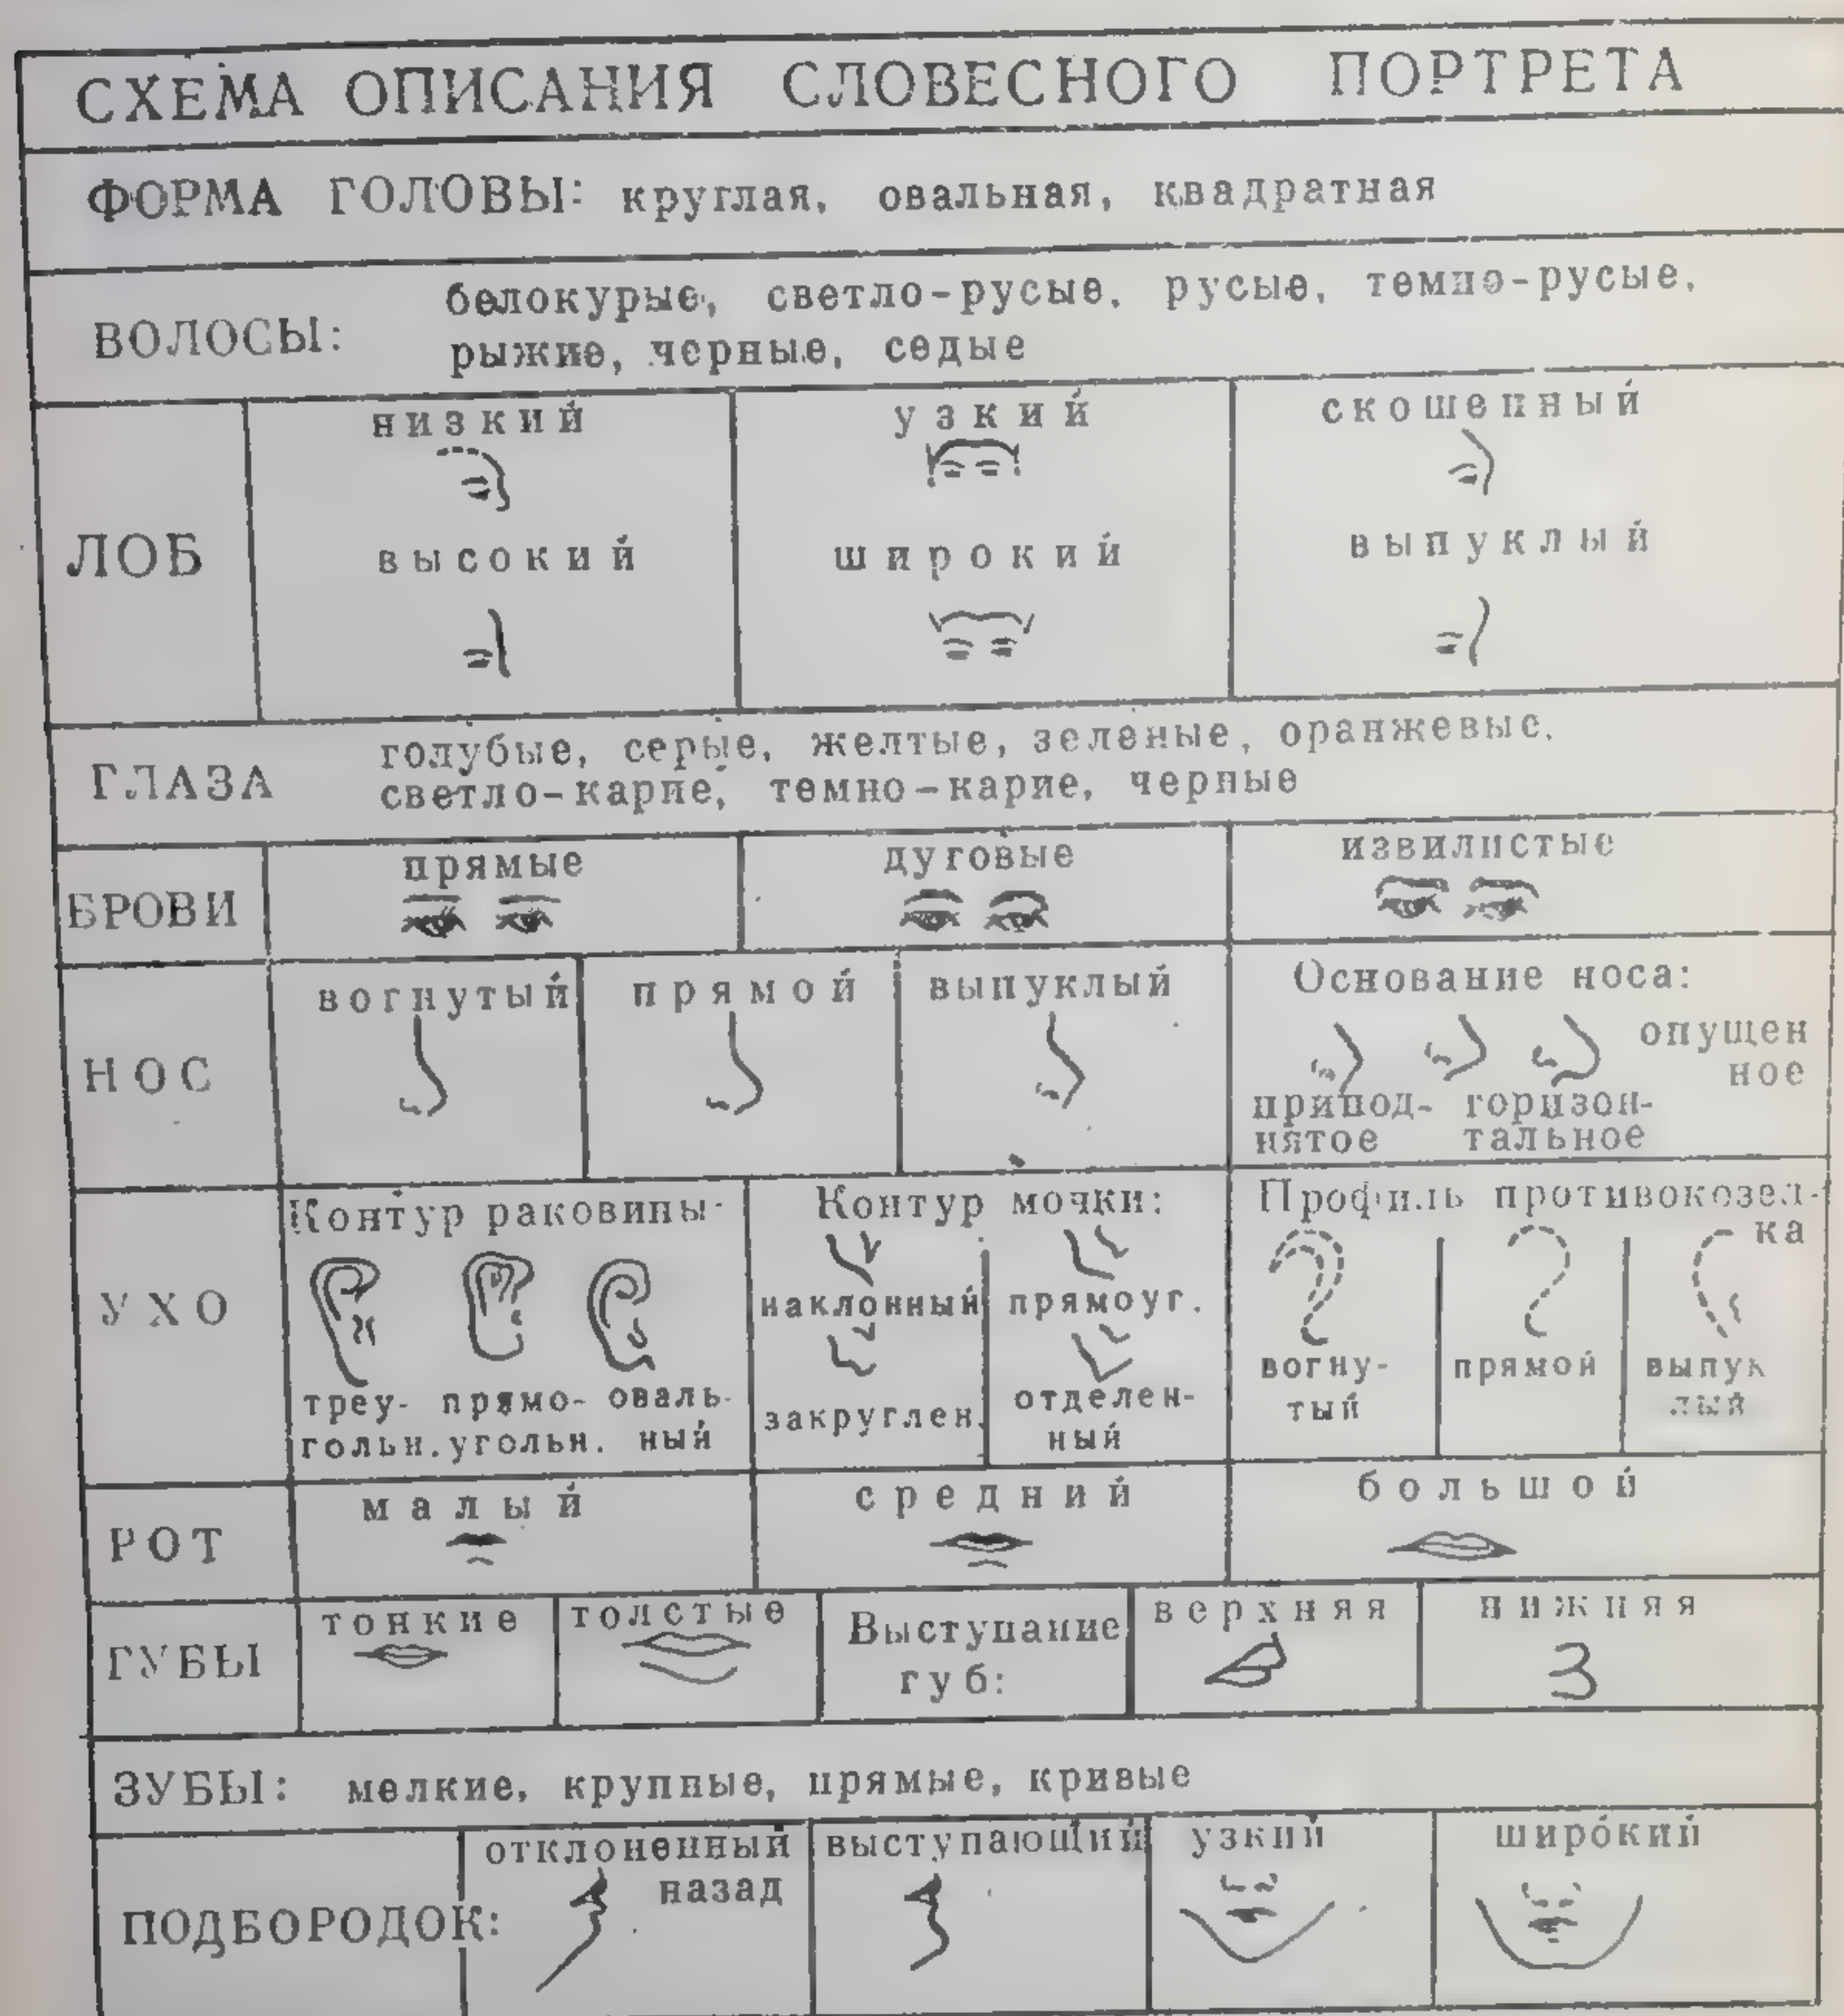 СХЕМА ОПИСАНИЯ СЛОВЕСНОГО ПОРТРЕТА
ФОРМА ГОЛОВЫ: круглая, овальная, квадратная
ВОЛОСЫ: белокурые, светло-русые, русые, темно-русые,
рыжие, черные, седые
ЛОБ
низкий узкий скошенный
высокий широкий выпуклый
ГЛАЗА
голубые, серые, желтые, зеленые, оранжевые,
светло-карие, темно-карие, черные
БРОВИ
прямые дуговые извилистые
НОС
вогнутый прямой выпуклый
Основание носа:
опущен
ное
припод- горизон-
нятое тальное
УХО
Контур раковины:
треу- прямо- оваль-
гольн. угольн. ный
Контур мочки:
наклонный прямоуг.
закруглен. отделен-
ный
Профиль противокозел-
ка
вогну- прямой выпук
тый лый
РОТ
малый средний большой
ГУБЫ
тонкие толстые
Выступание
губ:
верхняя нижняя
ЗУБЫ: мелкие, крупные, прямые, кривые
ПОДБОРОДОК:
отклоненный
назад
выступающий узкий широкий